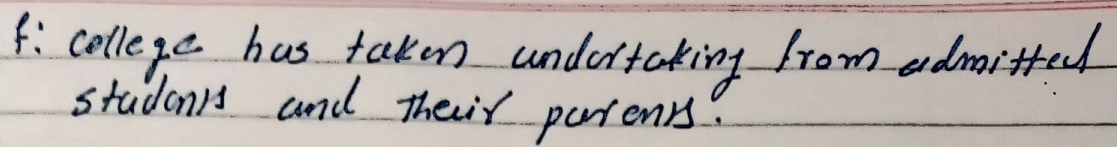 f: college has taken undertaking from admitted
students and their parents.